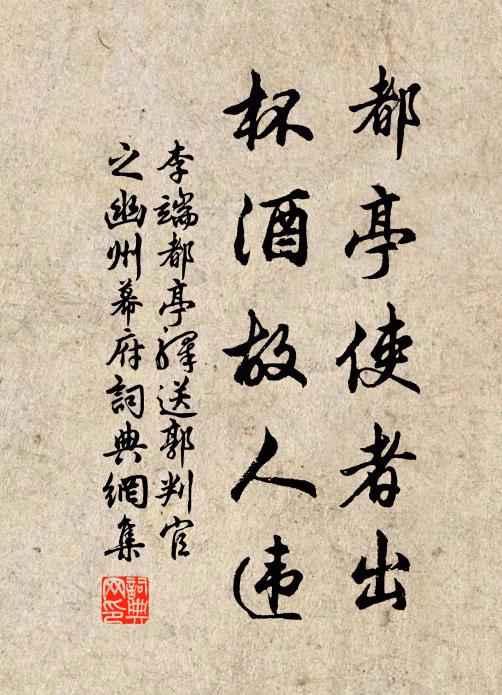 都亭使者出
杯酒故人违
李端都亭驛送郭判官
之幽州幕府詞典網集
詞典网印